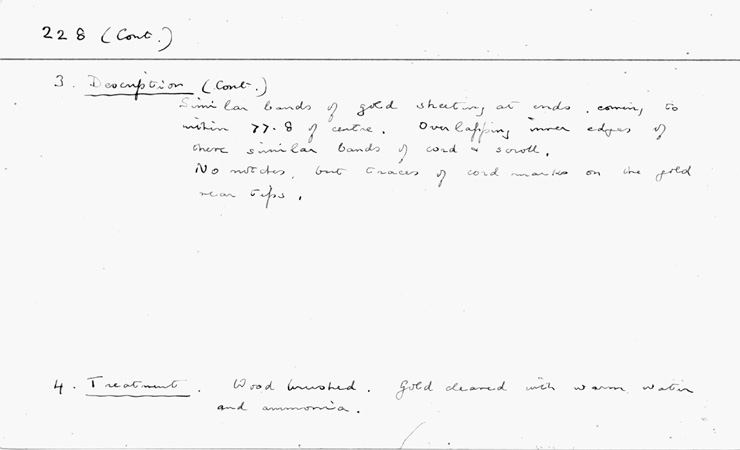 228 (Cont.)
3. Description (Cont.)
Similar bands of gold sheeting at ends, coming to
within 77.8 of centre. Overlapping inner edges of
these similar bands of cord & scroll.
No notches, but traces of cord marks on the gold
near tips.
4. Treatment. Wood brushed. Gold cleaned with warm water
and ammonia.